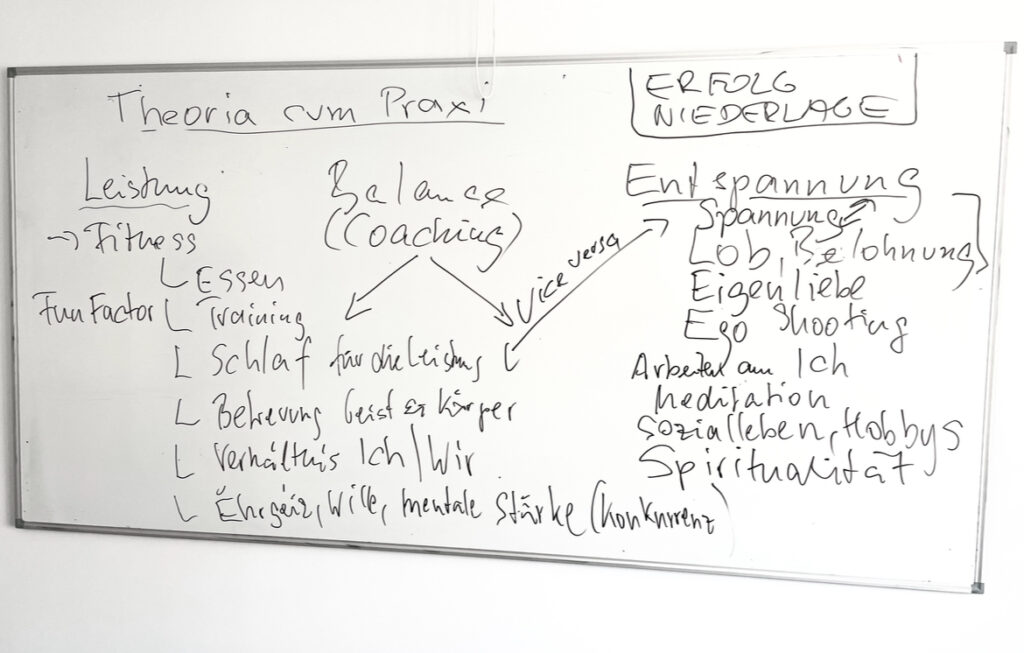 Theoria cum Praxi
ERFOLG
NIEDERLAGE
Leistung
→ Fitness
Essen
Fun Factor
Training
Schlaf für die Leistung
Betreuung Geist & Körper
Verhältnis Ich/Wir
Ehrgeiz, Wille, mentale Stärke (Konkurrenz)
Balance
(Coaching)
Vice versa
Entspannung
Spannung
Lob, Belohnung
Eigenliebe
Ego Shooting
Arbeiten am Ich
Meditation
Sozialleben, Hobbys
Spiritualität